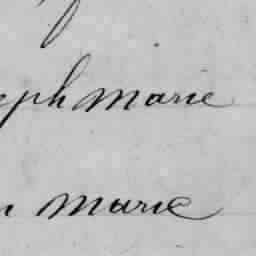 eph Marie
n Marie